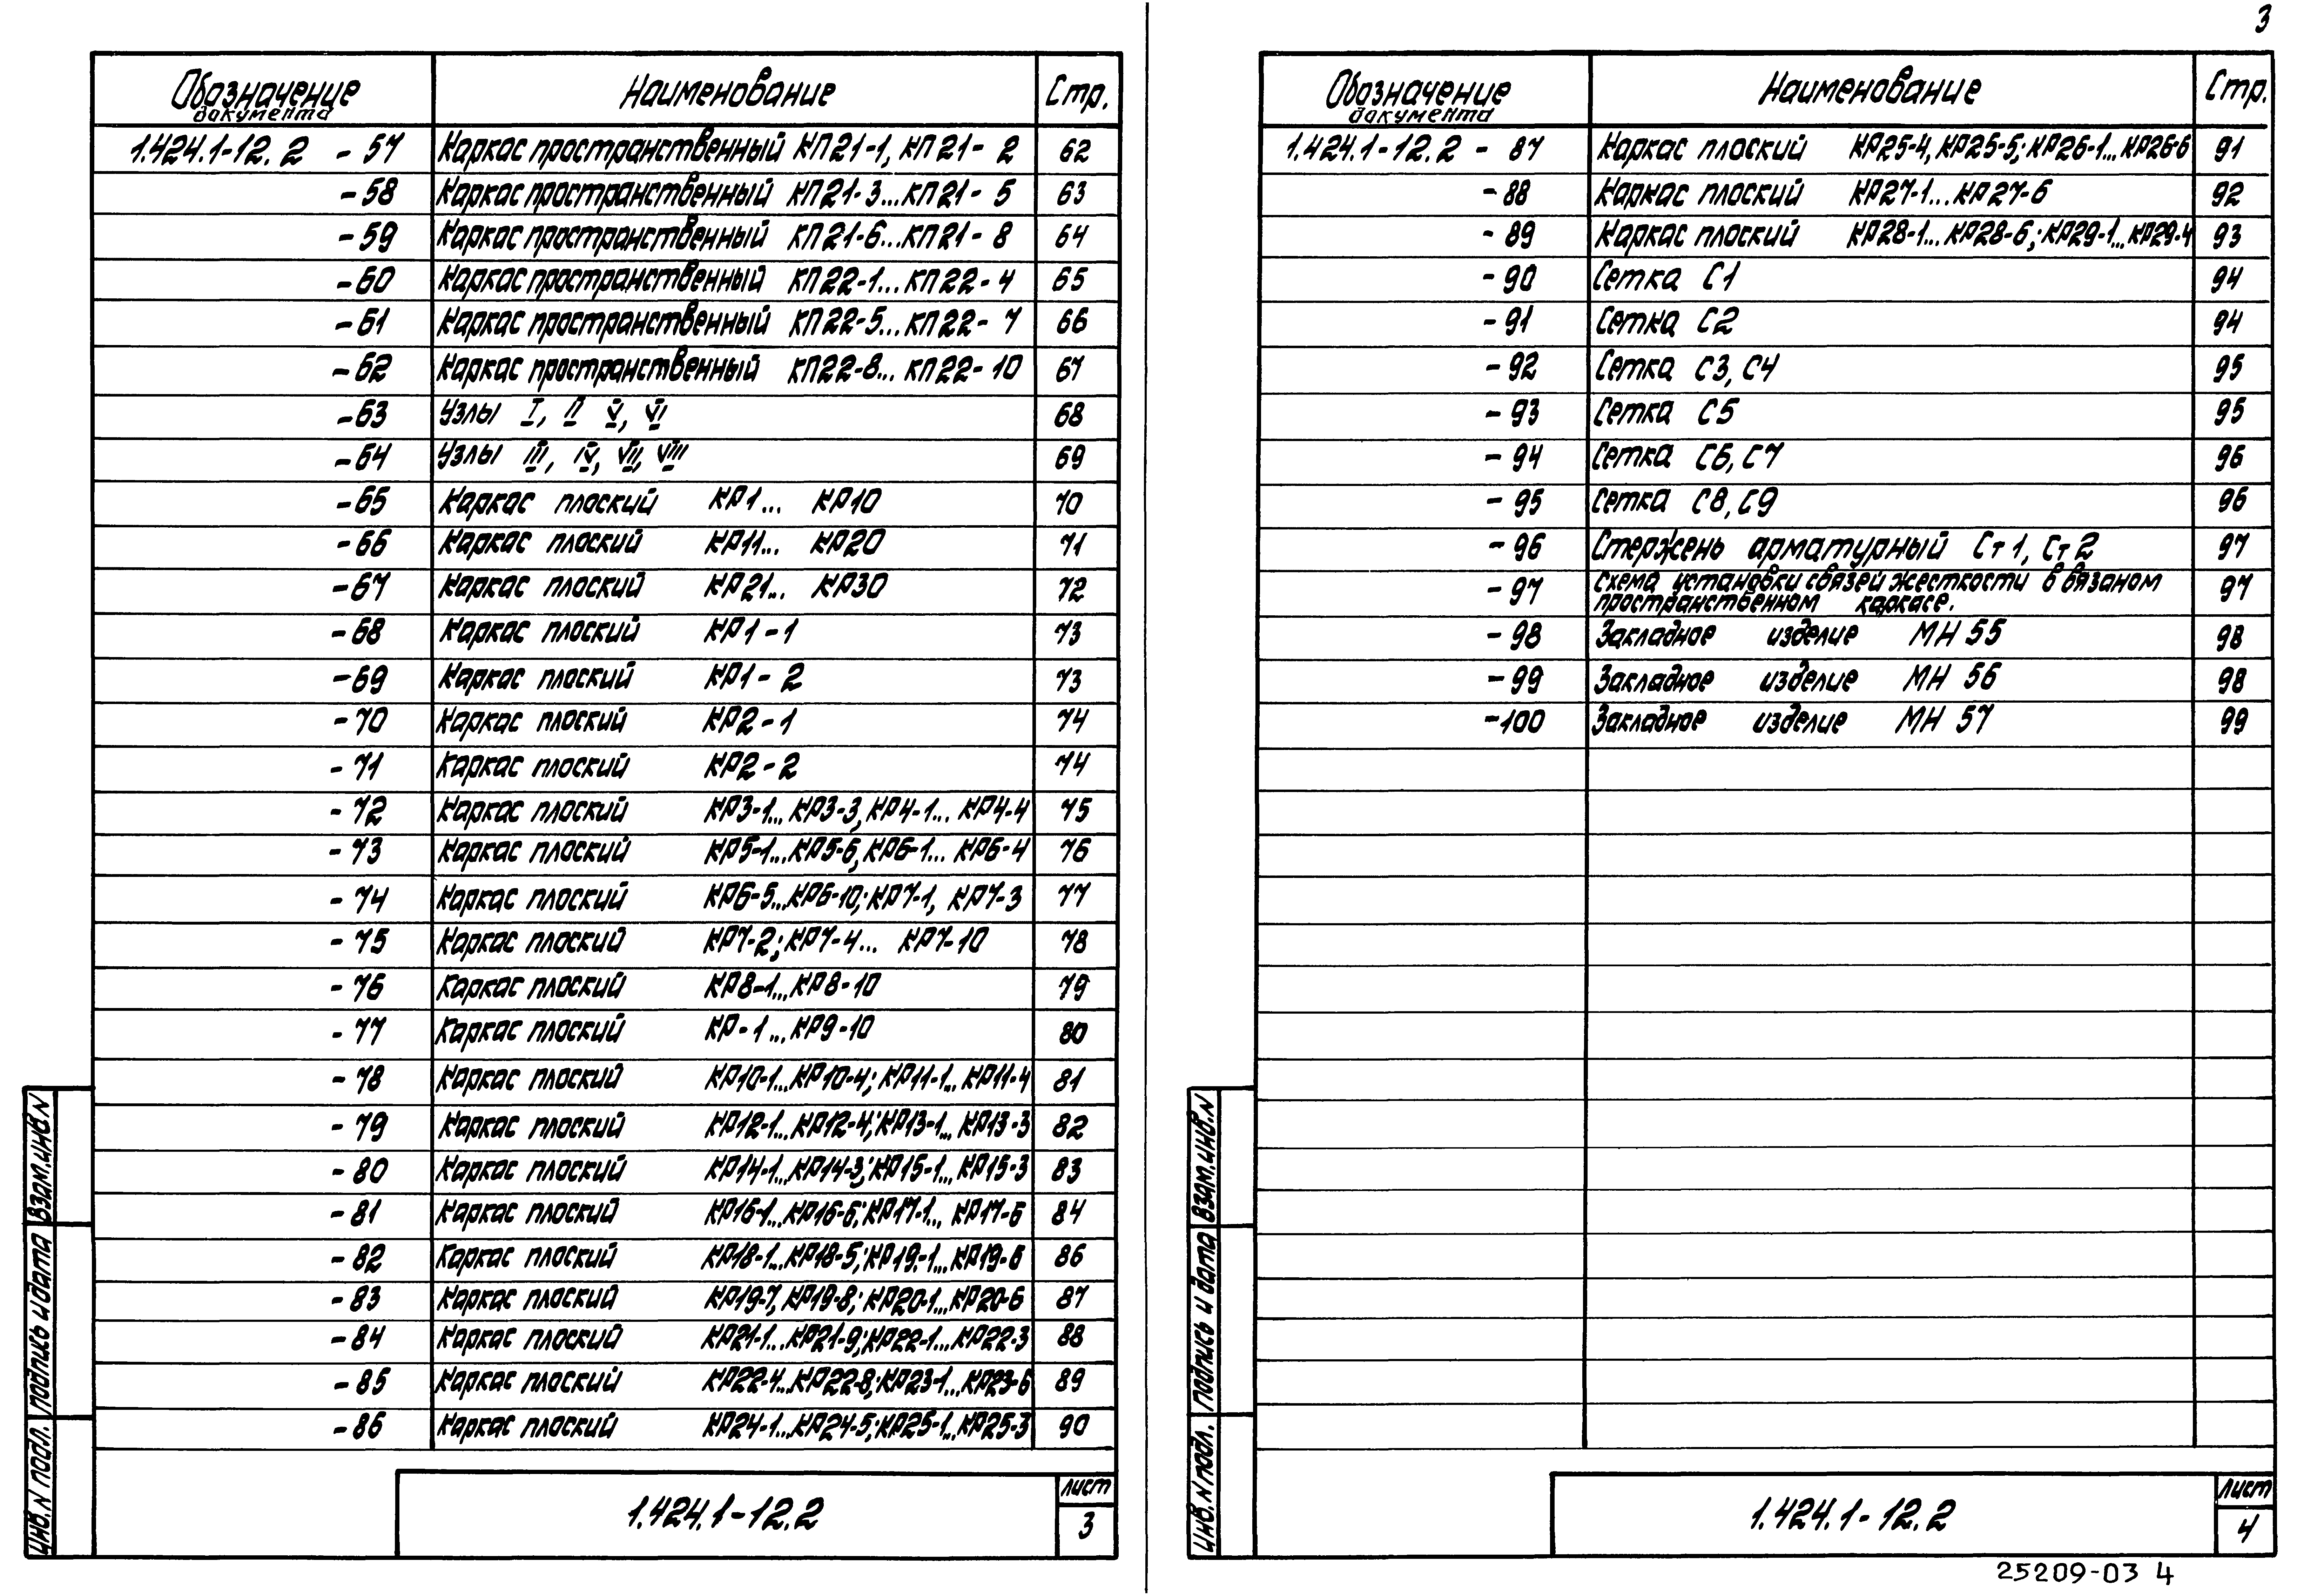 3
Обозначение документа Наименование Стр.
1.424.1-12.2 - 57 Каркас пространственный КП21-1, КП21-2 62
-58 Каркас пространственный КП21-3...КП21-5 63
-59 Каркас пространственный КП21-6...КП21-8 64
-60 Каркас пространственный КП22-1...КП22-4 65
-61 Каркас пространственный КП22-5...КП22-7 66
-62 Каркас пространственный КП22-8...КП22-10 67
-63 Узлы I, II V, VI 68
-64 Узлы III, IV, VII, VIII 69
-65 Каркас плоский КР1... КР10 70
-66 Каркас плоский КР11... КР20 71
-67 Каркас плоский КР21... КР30 72
-68 Каркас плоский КР1-1 73
-69 Каркас плоский КР1-2 73
-70 Каркас плоский КР2-1 74
-71 Каркас плоский КР2-2 74
-72 Каркас плоский КР3-1...КР3-3, КР4-1...КР4-4 75
-73 Каркас плоский КР5-1...КР5-6, КР6-1...КР6-4 76
-74 Каркас плоский КР6-5...КР6-10; КР7-1, КР7-3 77
-75 Каркас плоский КР7-2; КР7-4... КР7-10 78
-76 Каркас плоский КР8-1...КР8-10 79
-77 Каркас плоский КР-1...КР9-10 80
-78 Каркас плоский КР10-1...КР10-4; КР11-1...КР11-4 81
-79 Каркас плоский КР12-1...КР12-4; КР13-1...КР13-3 82
-80 Каркас плоский КР14-1...КР14-3; КР15-1...КР15-3 83
-81 Каркас плоский КР16-1...КР16-6; КР17-1...КР17-6 84
-82 Каркас плоский КР18-1...КР18-5; КР19-1...КР19-6 86
-83 Каркас плоский КР19-7, КР19-8; КР20-1...КР20-6 87
-84 Каркас плоский КР21-1...КР21-9; КР22-1...КР22-3 88
-85 Каркас плоский КР22-4...КР22-8; КР23-1...КР23-6 89
-86 Каркас плоский КР24-1...КР24-5; КР25-1...КР25-3 90
Взам.инв.N
Подпись и дата
Инв.N подл.
1.424.1-12.2
Лист
3
Обозначение документа Наименование Стр.
1.424.1-12.2 - 87 Каркас плоский КР25-4, КР25-5; КР26-1...КР26-6 91
-88 Каркас плоский КР27-1...КР27-6 92
-89 Каркас плоский КР28-1...КР28-6; КР29-1...КР29-4 93
-90 Сетка С1 94
-91 Сетка С2 94
-92 Сетка С3, С4 95
-93 Сетка С5 95
-94 Сетка С6, С7 96
-95 Сетка С8, С9 96
-96 Стержень арматурный Ст1, Ст2 97
-97 Схема установки связей жесткости в вязаном 97
пространственном каркасе.
-98 Закладное изделие МН 55 98
-99 Закладное изделие МН 56 98
-100 Закладное изделие МН 57 99
Взам.инв.N
Подпись и дата
Инв.N подл.
1.424.1-12.2
Лист
4
25209-03 4